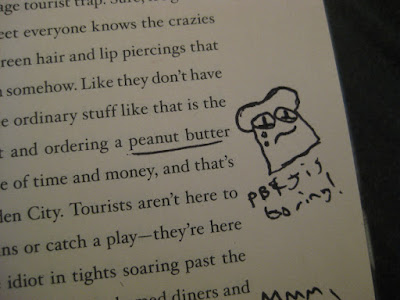 age tourist trap. Sure,
eet everyone knows the crazies
reen hair and lip piercings that
somehow. Like they don't have
e ordinary stuff like that is the
t and ordering a peanut butter
e of time and money, and that's
den City. Tourists aren't here to
ns or catch a play—they're here
idiot in tights soaring past the
diners and
PB&J is
boring!
MMM,